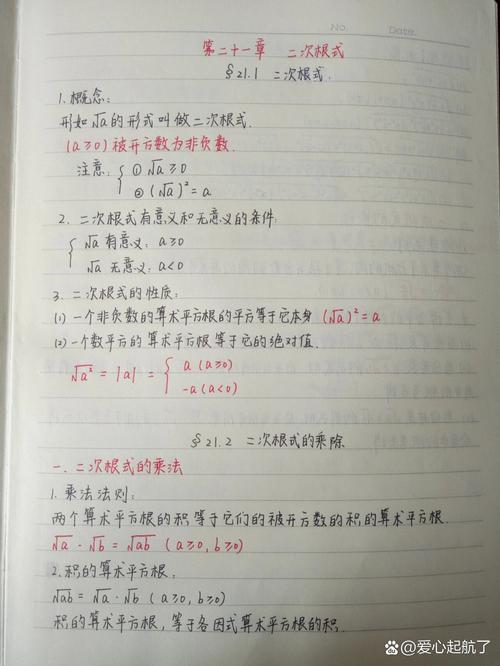 No.
Date.
第二十一章 二次根式
§21.1 二次根式.
1. 概念:
形如√a的形式叫做二次根式.
(a≥0) 被开方数为非负数.
注意: { ① √a≥0
② (√a)² = a
2. 二次根式有意义和无意义的条件:
{ √a 有意义: a≥0
√a 无意义: a<0
3. 二次根式的性质:
(1) 一个非负数的算术平方根的平方等于它本身 (√a)² = a
(2) 一个数平方的算术平方根等于它的绝对值.
√a² = |a| = { a (a≥0)
-a (a<0)
§21.2 二次根式的乘除
一. 二次根式的乘法
1. 乘法法则:
两个算术平方根的积等于它们的被开方数的积的算术平方根.
√a · √b = √ab (a≥0, b≥0)
2. 积的算术平方根.
√ab = √a · √b (a≥0, b≥0)
积的算术平方根, 等于各因式算术平方根的积.
@爱心起航了